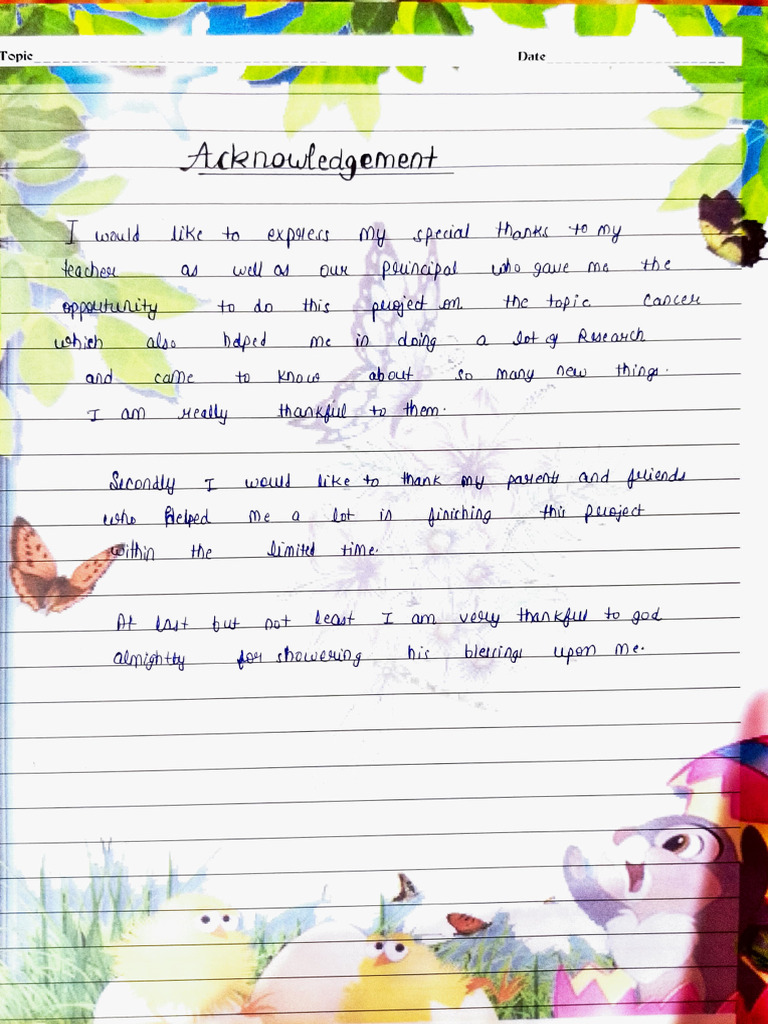 Topic Date
Acknowledgement
I would like to express my special thanks to my
teacher as well as our principal who gave me the
opportunity to do this project on the topic cancer
which also helped me in doing a lot of Research
and came to know about so many new things.
I am really thankful to them.
Secondly I would like to thank my parents and friends
who helped me a lot in finiching this project
within the limited time.
At last but not least I am very thankful to god
almightty for showering his blessings upon me.